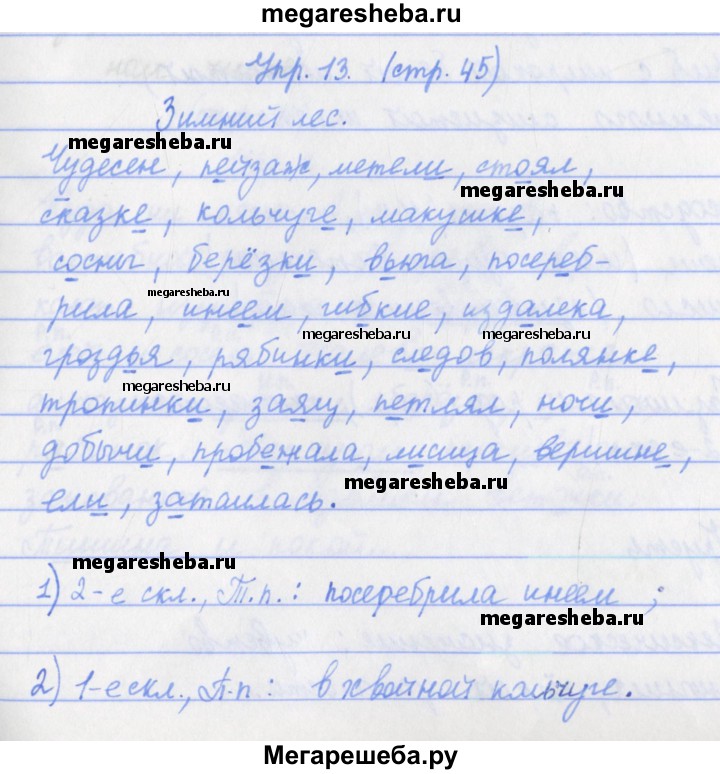 megaresheba.ru
Упр. 13. (стр. 45)
Зимний лес.
megaresheba.ru
Чудесен, пейзаж, метели, стоял,
megaresheba.ru
сказке, кольчуге, макушке,
сосны, берёзки, вьюга, посереб-
megaresheba.ru
рила, инеем, гибкие, издалека,
megaresheba.ru
megaresheba.ru
гроздья, рябинки, следов, полянке,
megaresheba.ru
тропинки, заяц, петлял, ночи,
добычи, пробежала, лисица, вершине,
megaresheba.ru
ели, затаилась.
megaresheba.ru
1) 2-е скл., Т.п.: посеребрила инеем;
megaresheba.ru
2) 1-е скл., П.п: в хвойной кольчуге.
Мегарешеба.ру